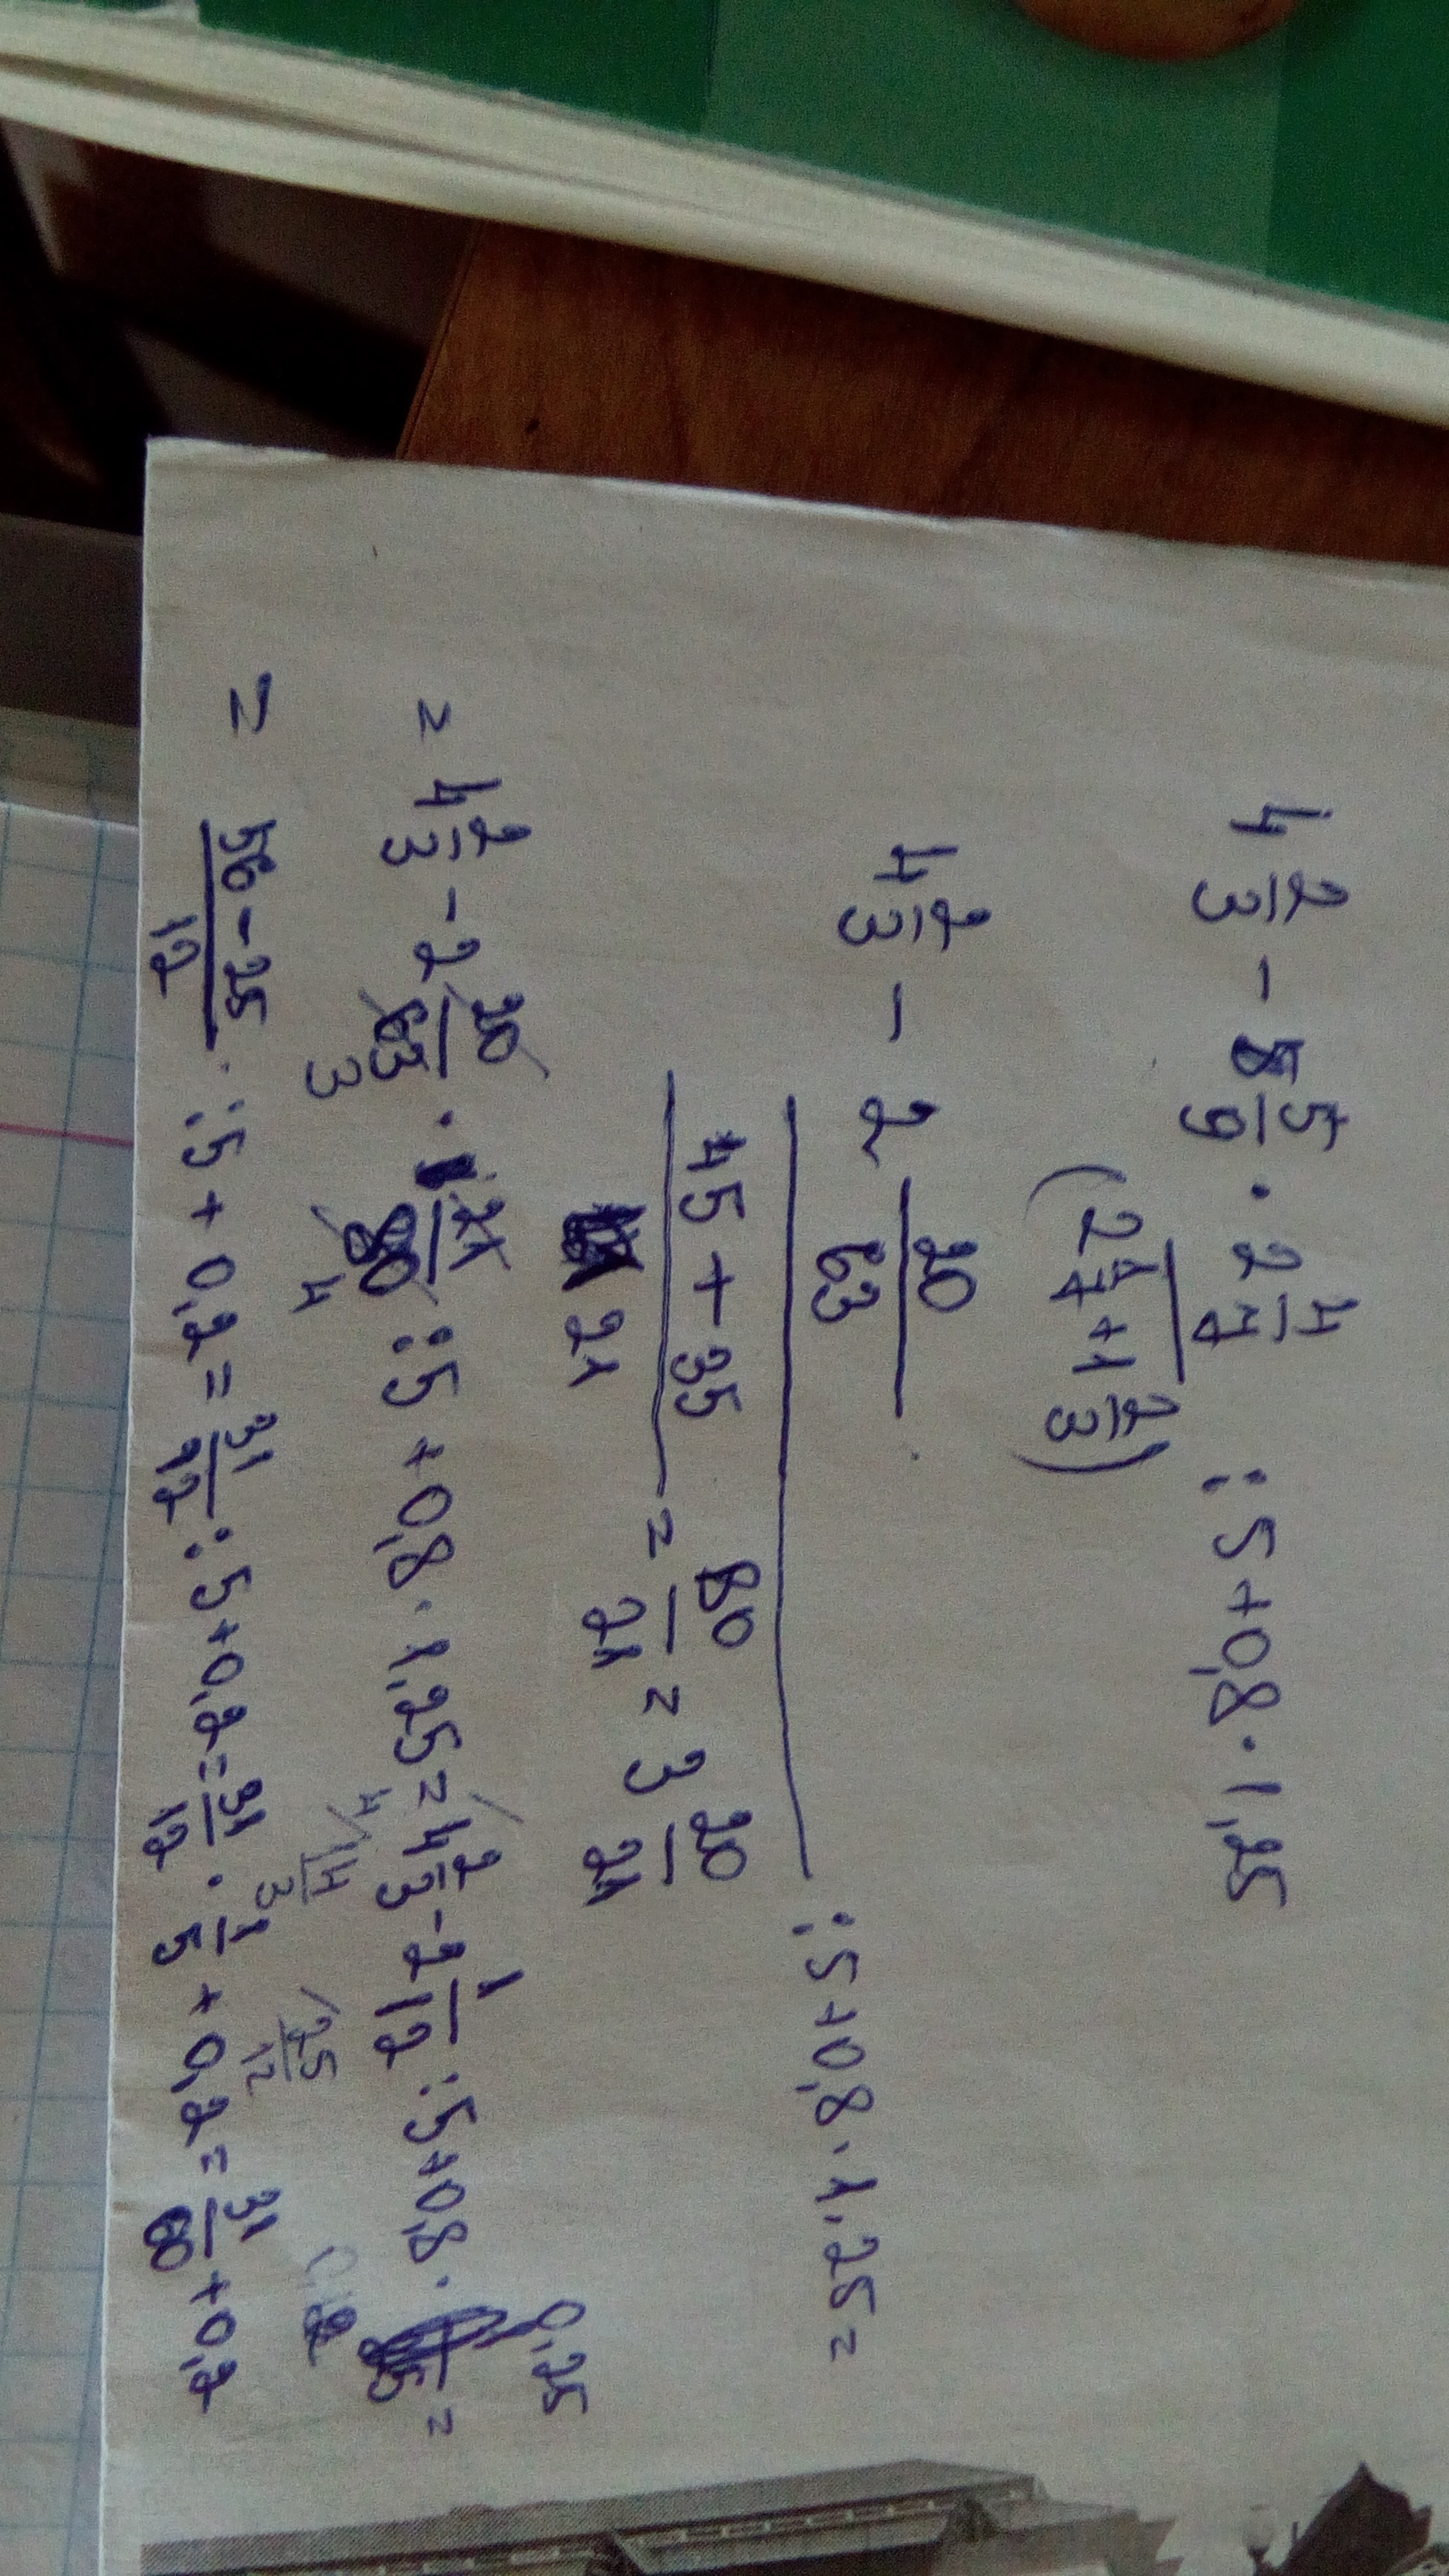 4 2/3 - 5/9 · 2 4/7 : 5 + 0,8 · 1,25
(2 1/7 + 1 2/3)
4 2/3 - 2 20/63 : 5 + 0,8 · 1,25 =
45 + 35 / 21 = 80/21 = 3 20/21
= 4 2/3 - 2 20/63 · 21/80 : 5 + 0,8 · 1,25 = 4 2/3 - 2 1/12 : 5 + 0,8 · 0,25 =
3 4 4 14/3 25/12
= 56 - 25 / 12 : 5 + 0,2 = 31/12 : 5 + 0,2 = 31/12 · 1/5 + 0,2 = 31/60 + 0,2